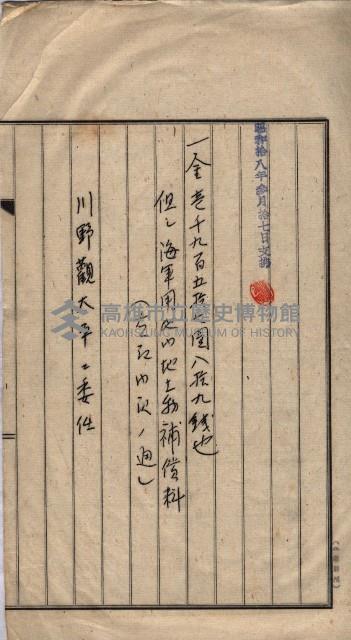 昭和拾八年参月拾七日支拂
一金壱千九百五拾圓八拾九銭也
但シ海軍用地内地上物補償料
（全部内訳ノ通）
川野觀太平ニ委任
高雄市立歷史博物館
KAOHSIUNG MUSEUM OF HISTORY